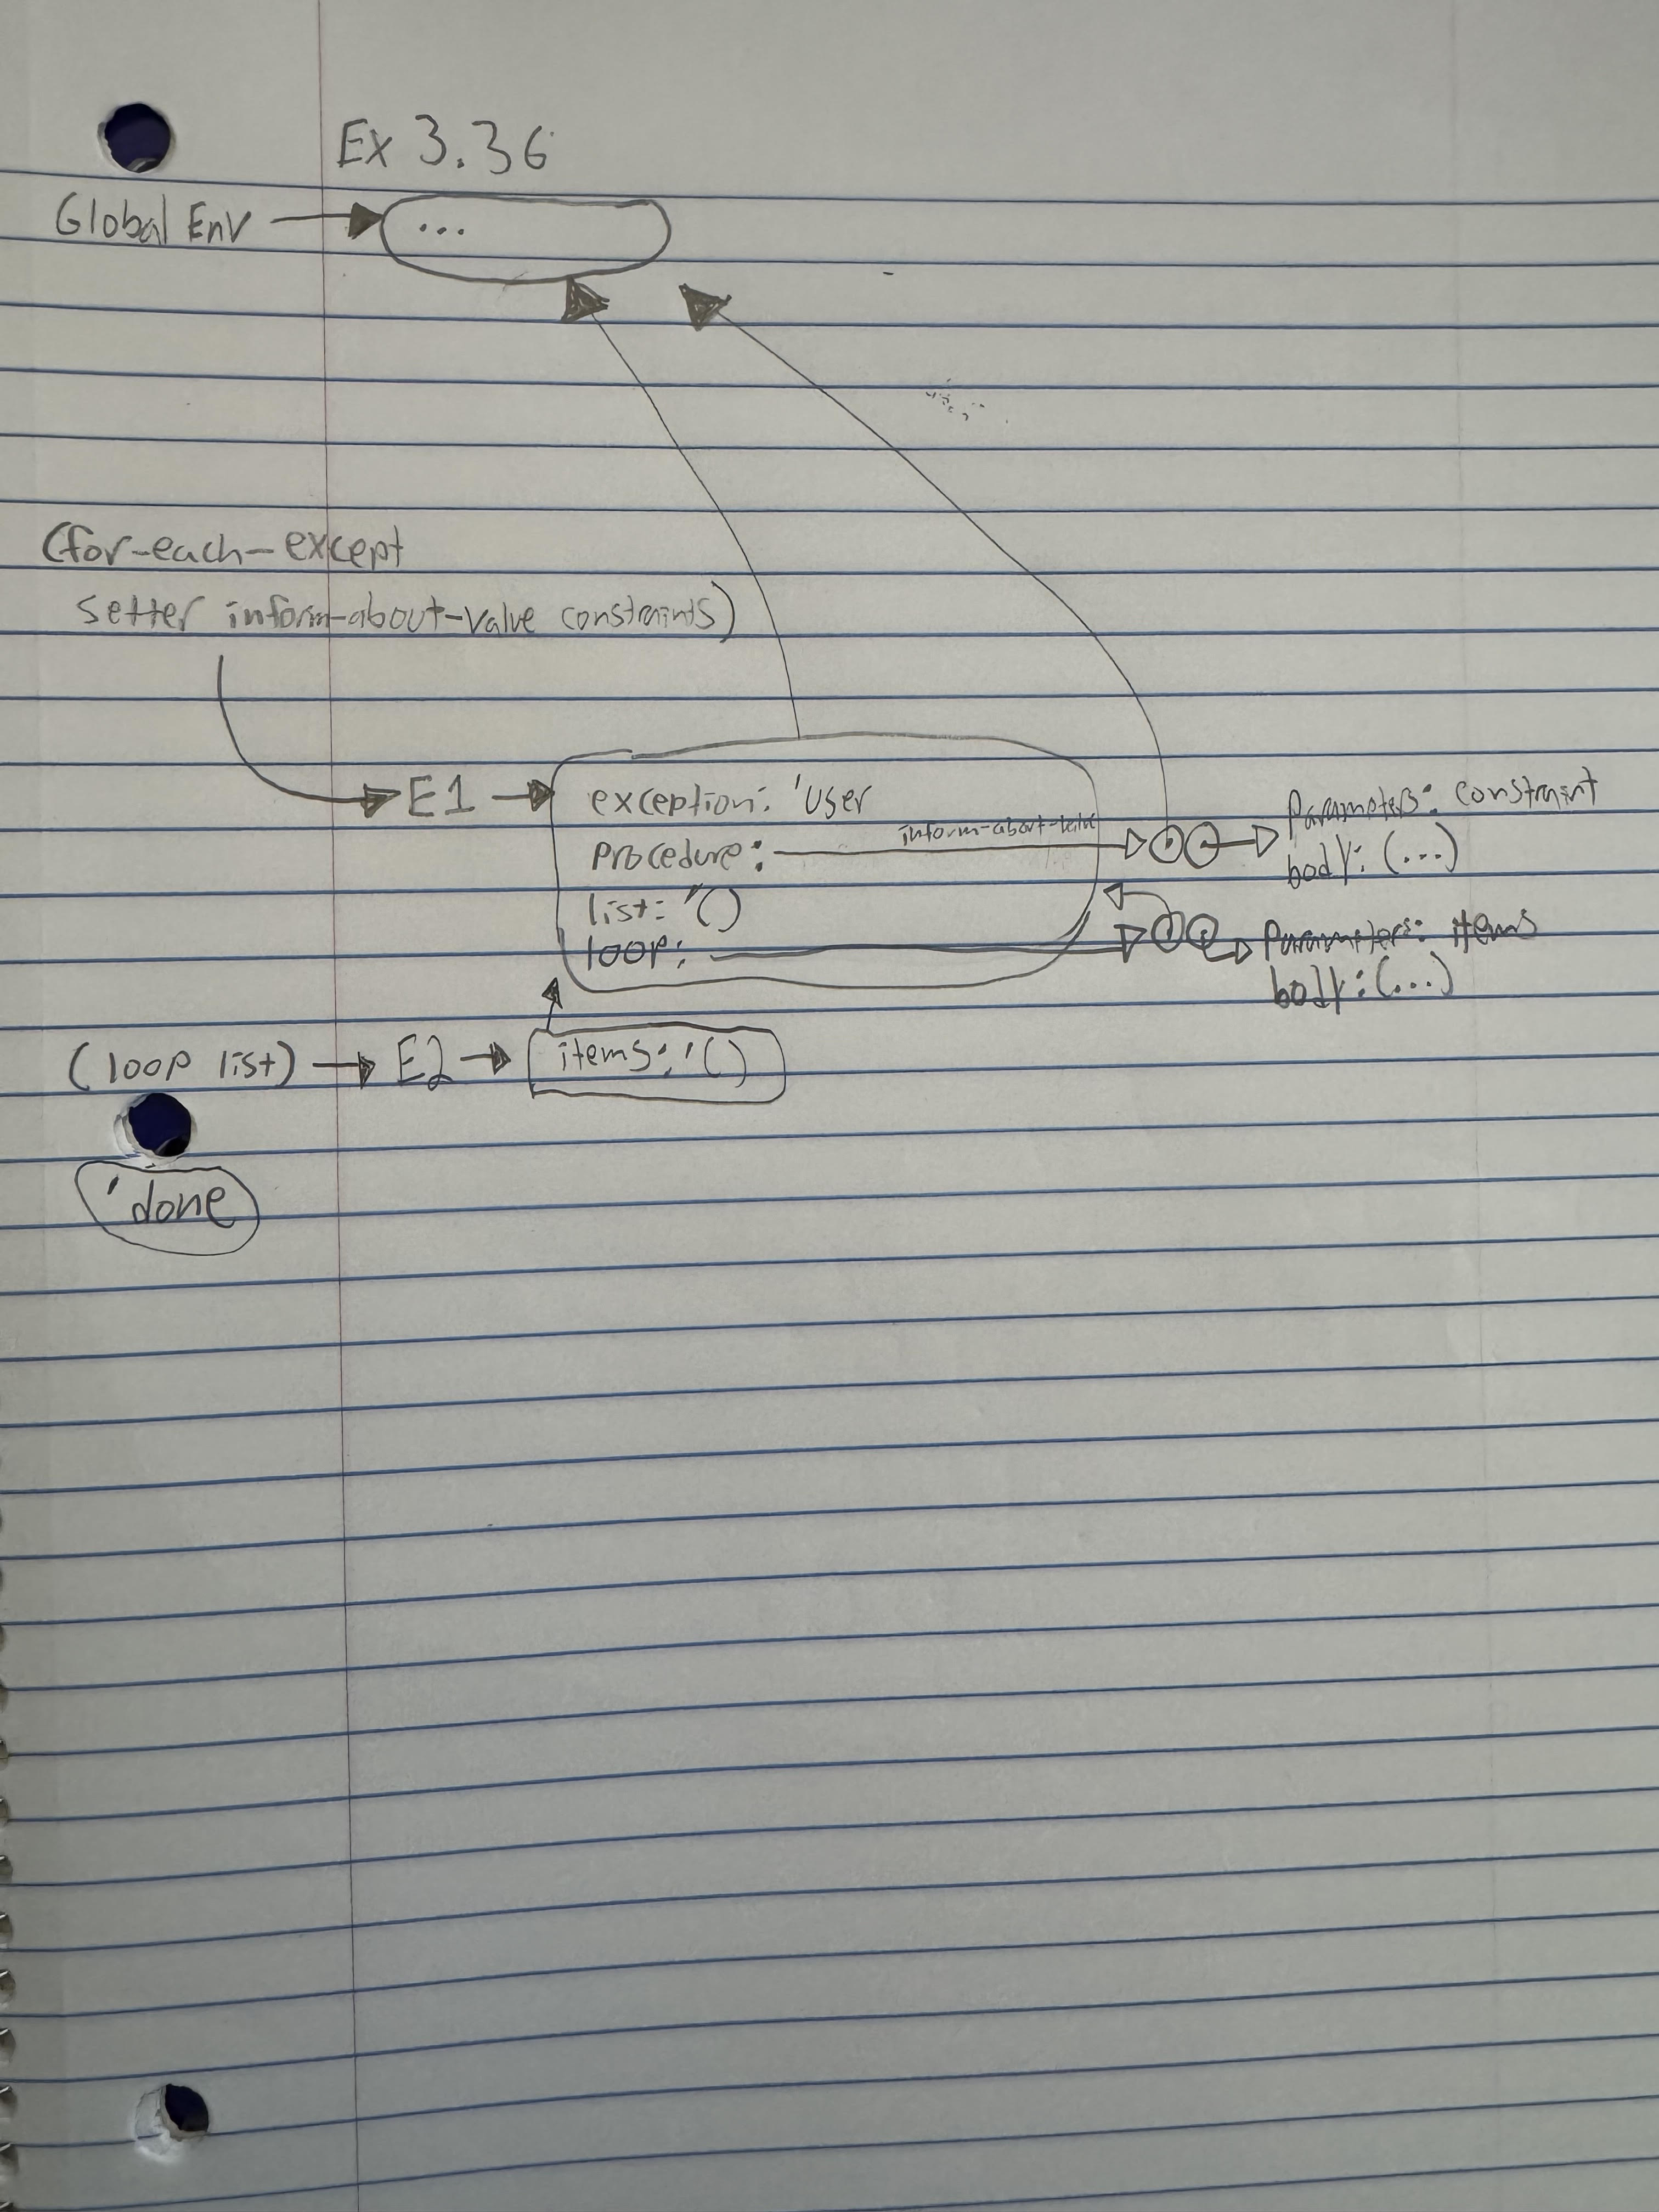 Ex 3.36
Global Env
...
(for-each-except
setter inform-about-value constraints)
E1
exception: 'user
procedure:
inform-about-value
Parameters: constraint
body: (...)
list: '()
loop:
Parameters: items
body: (...)
(loop list)
E2
items: '()
'done